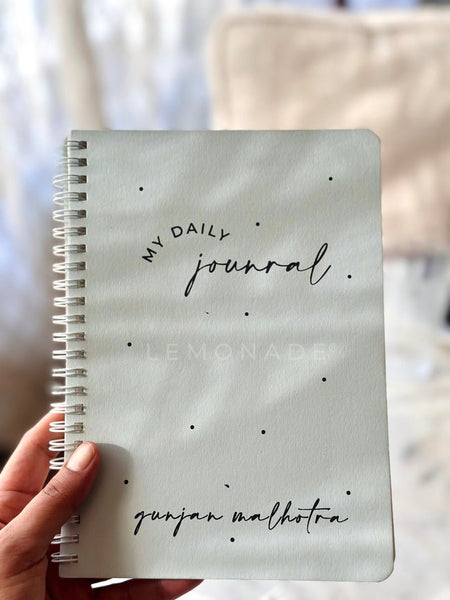 MY DAILY
jounral
LEMONADE
gunjan malhotra